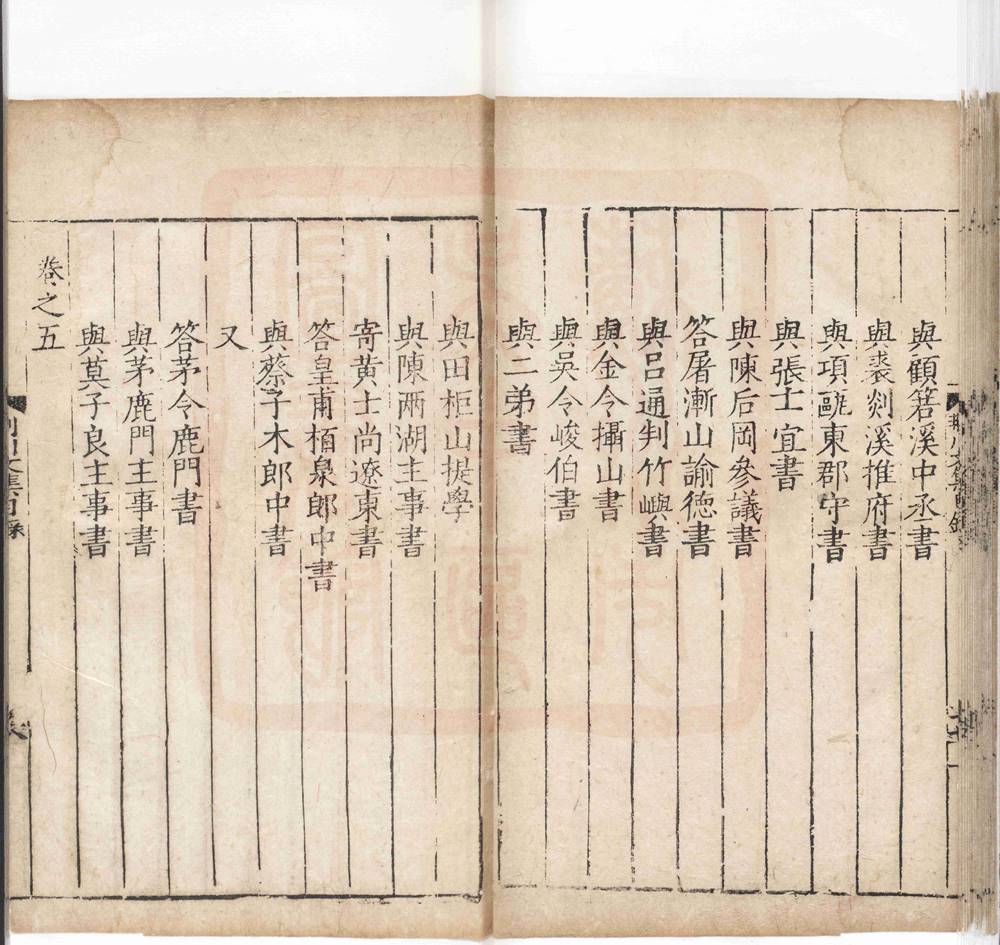 與顧箬溪中丞書
與裘剡溪推府書
與項甌東郡守書
與張士宜書
與陳后岡參議書
答屠漸山諭德書
與吕通判竹嶼書
與金令攝山書
與吳令峻伯書
與二弟書
與田柜山提學
與陳兩湖主事書
寄黄士尚遼東書
答皇甫栢泉郎中書
與蔡子木郎中書
又
答茅令鹿門書
與茅鹿門主事書
與莫子良主事書
卷之五